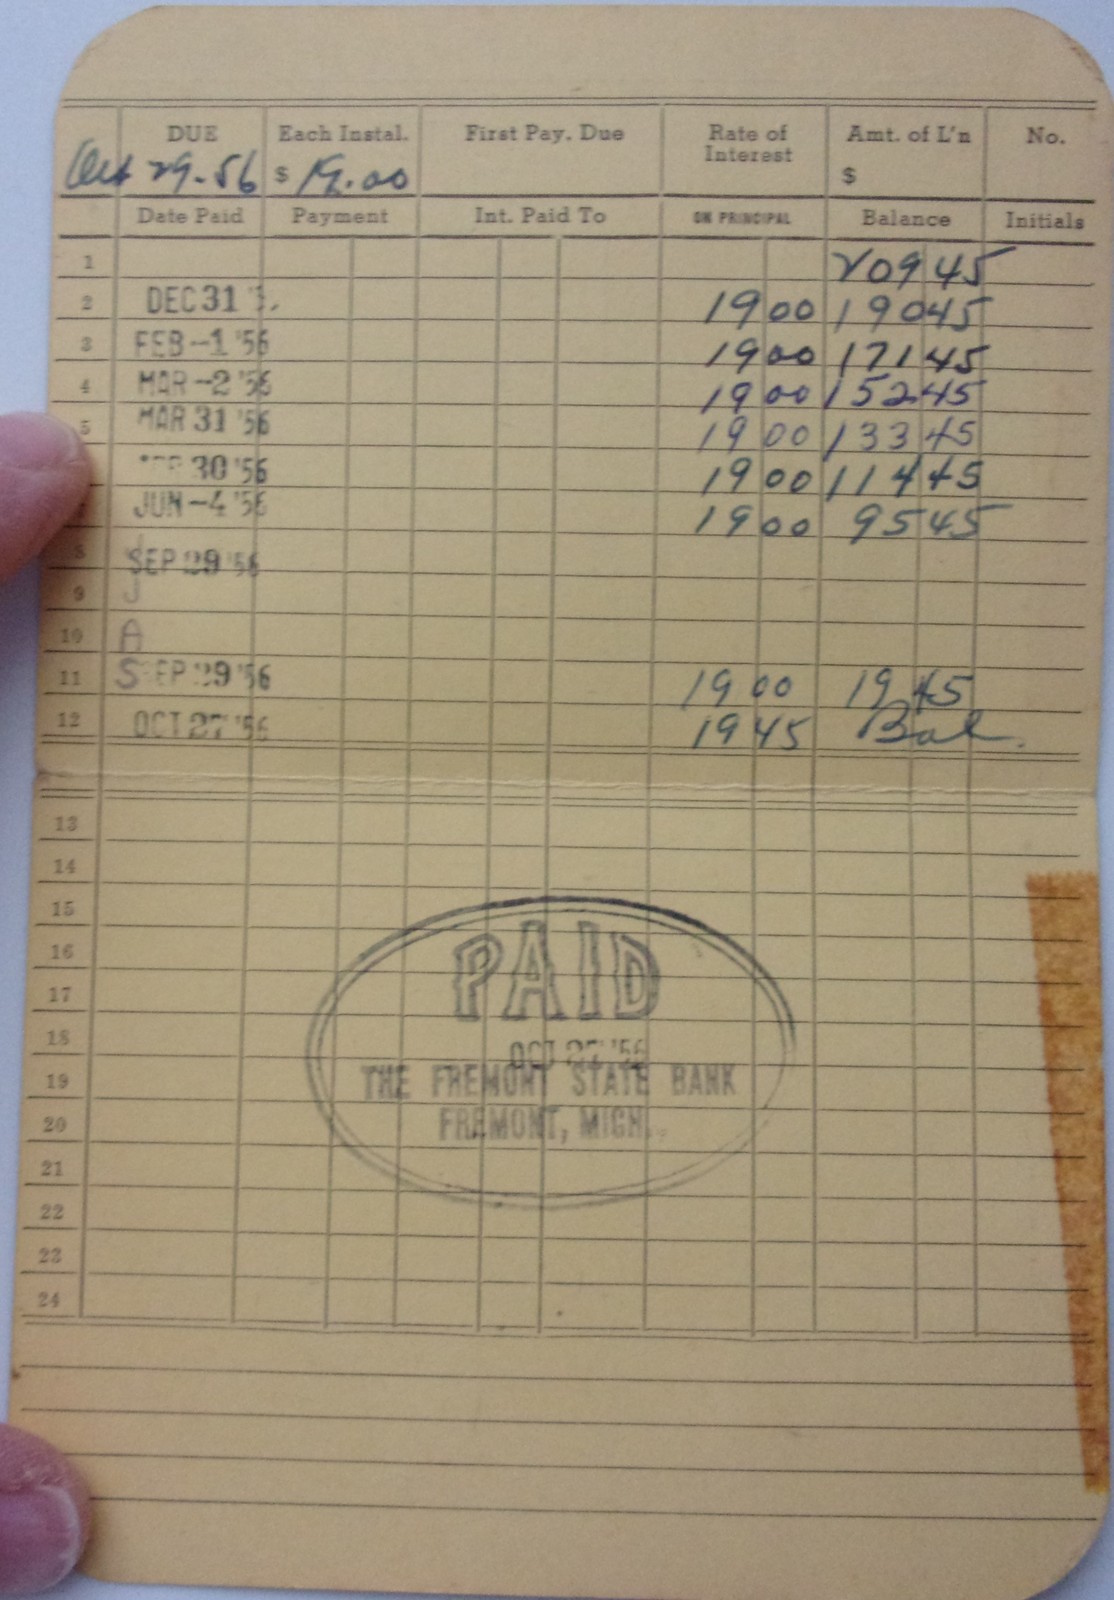 DUE Each Instal. First Pay. Due Rate of Interest Amt. of L'n No.
Oct 29-56 $ 19.00 $
Date Paid Payment Int. Paid To ON PRINCIPAL Balance Initials
1 209 45
2 DEC 31 19 00 190 45
3 FEB -1 '56 19 00 171 45
4 MAR -2 '56 19 00 152 45
5 MAR 31 '56 19 00 133 45
30 '56 19 00 114 45
JUN -4 '56 19 00 95 45
8 SEP 29 '56
9 J
10 A
11 SEP 29 '56 19 00 19 45
12 OCT 27 '56 19 45 Bal.
13
14
15
16 PAID
17
18 OCT 27 '56
19 THE FREMONT STATE BANK
20 FREMONT, MICH.
21
22
23
24